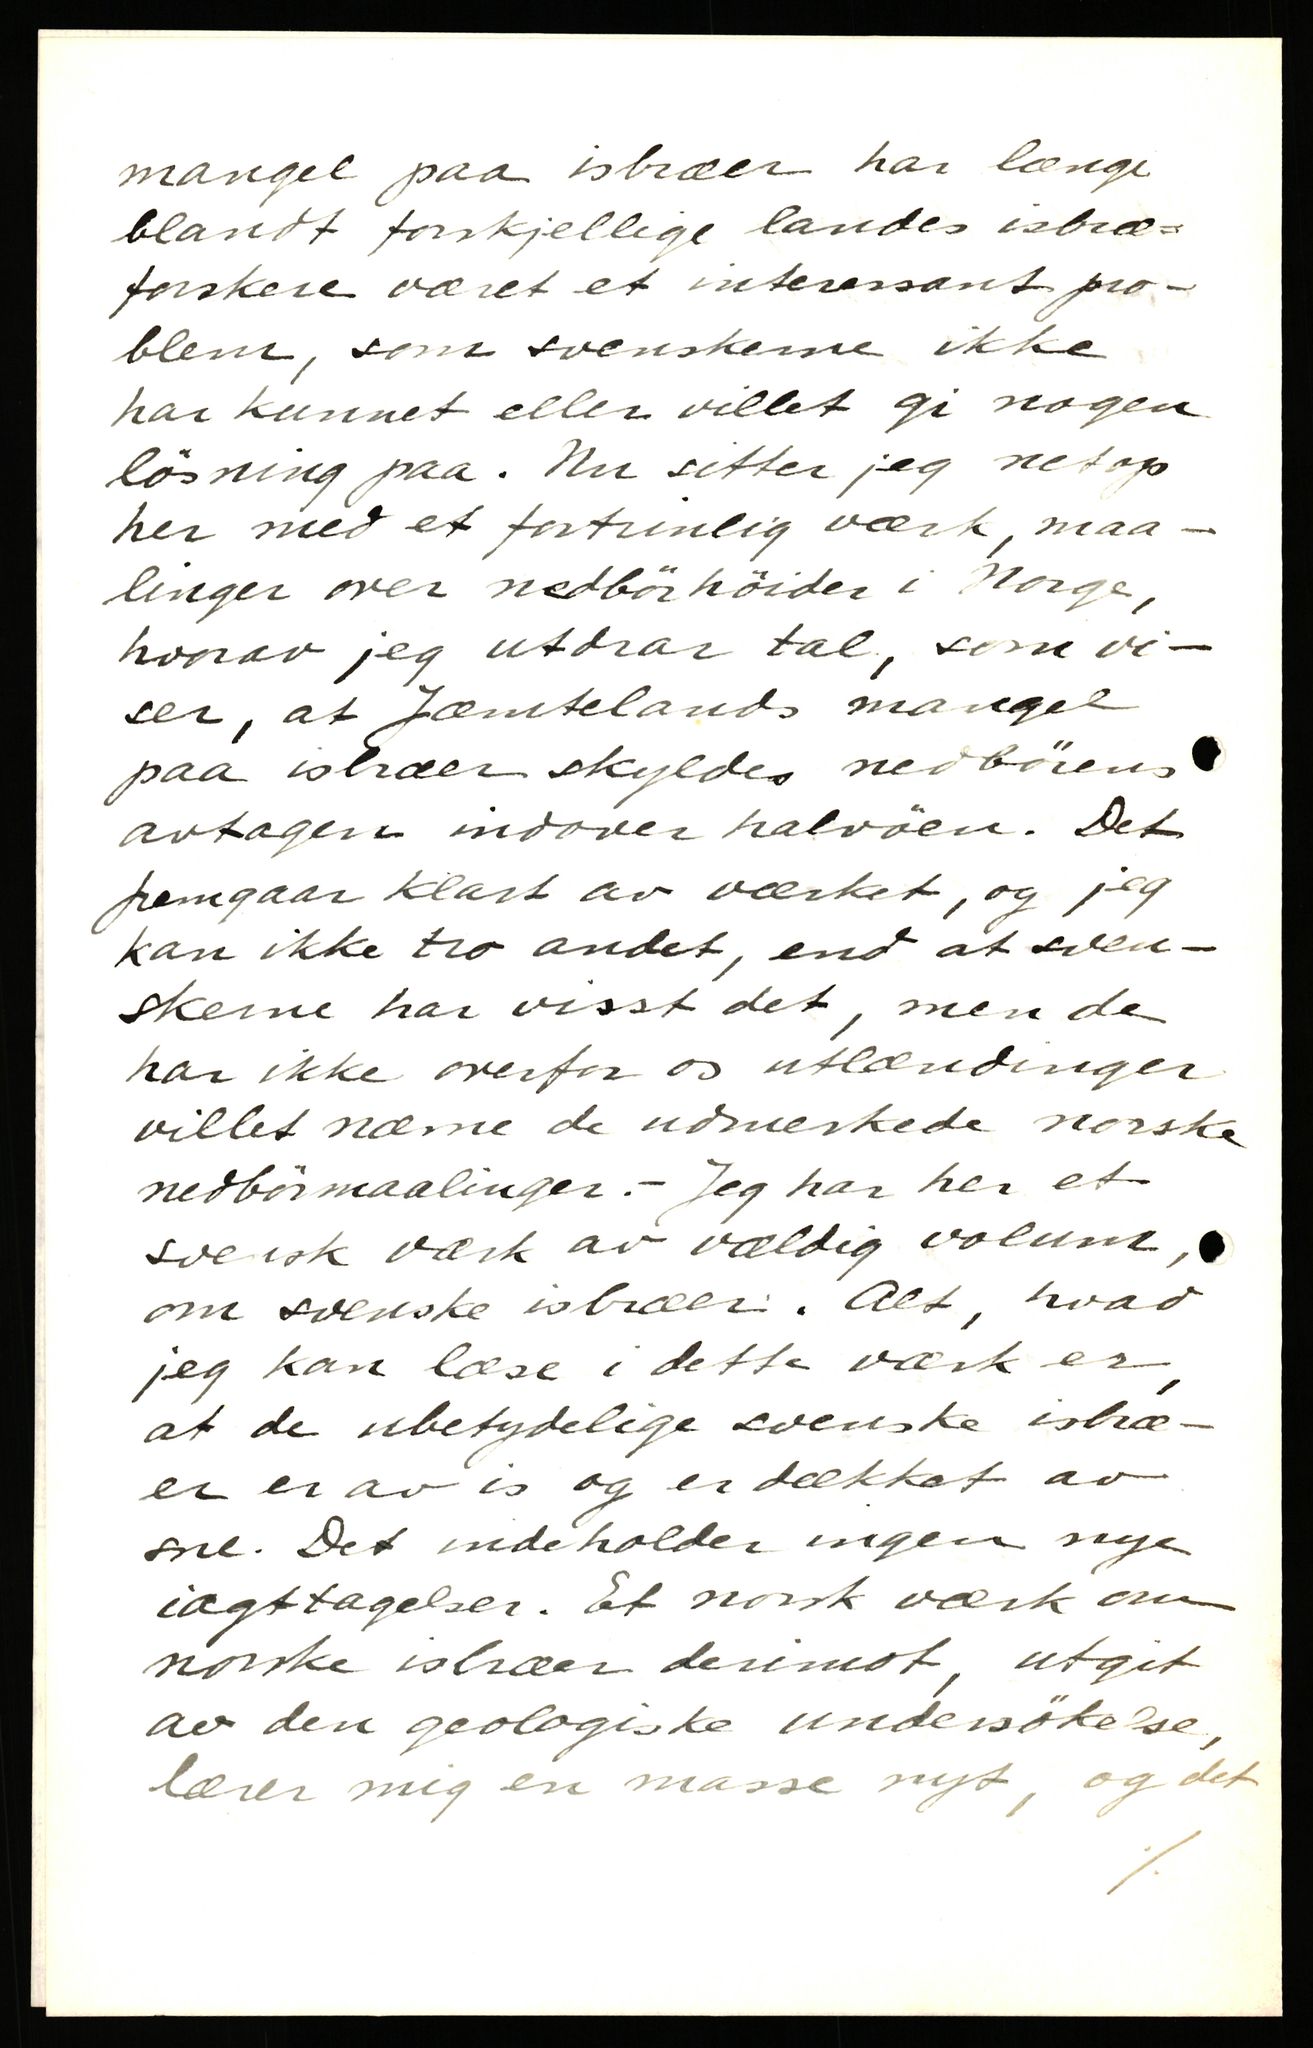 mangel paa isbræer har længe
blandt forskjellige landes isbræ=
forskere været et interessant pro-
blem, som svenskerne ikke
har kunnet eller villet gi nogen
lösning paa. Nu sitter jeg netop
her med et fortrinlig værk, maa-
linger over nedbörhöider i Norge,
hvorav jeg utdrar tal, som vi-
ser, at Jæmtelands mangel
paa isbræer skyldes nedbörens
avtagen indover halvöen. Det
fremgaar klart av værket, og jeg
kan ikke tro andet, end at sven-
skerne har visst det, men de
har ikke overfor os utlændinger
villet nævne de udmerkede norske
nedbörmaalinger.- Jeg har her et
svensk værk av vældig volum,
om svenske isbræer. Alt, hvad
jeg kan læse i dette værk er,
at de ubetydelige svenske isbræ-
er er av is og er dækket av
sne. Det indeholder ingen nye
iagttagelser. Et norsk værk om
norske isbræer derimot, utgit
av den geologiske undersökelse,
lærer mig en masse nyt, og det
./.